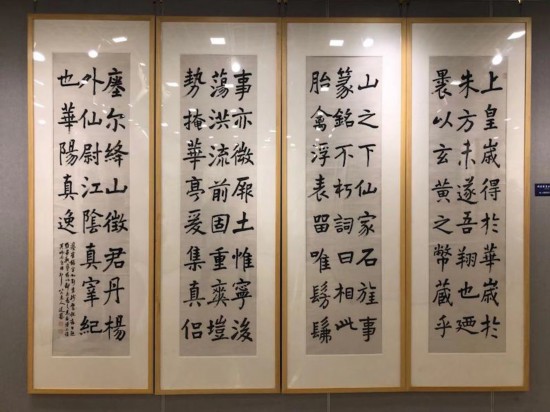 上皇歲得於華歲於
朱方未遂吾翔也迺
裹以玄黃之幣藏乎
山之下仙家石旌事
篆銘不朽詞曰相此
胎禽浮表留唯髣髴
事亦微厥土惟寧後
蕩洪流前固重爽塏
勢掩華亭爰集真侶
尔絳山徵君丹楊
外仙尉江陰真宰紀
也華陽真逸